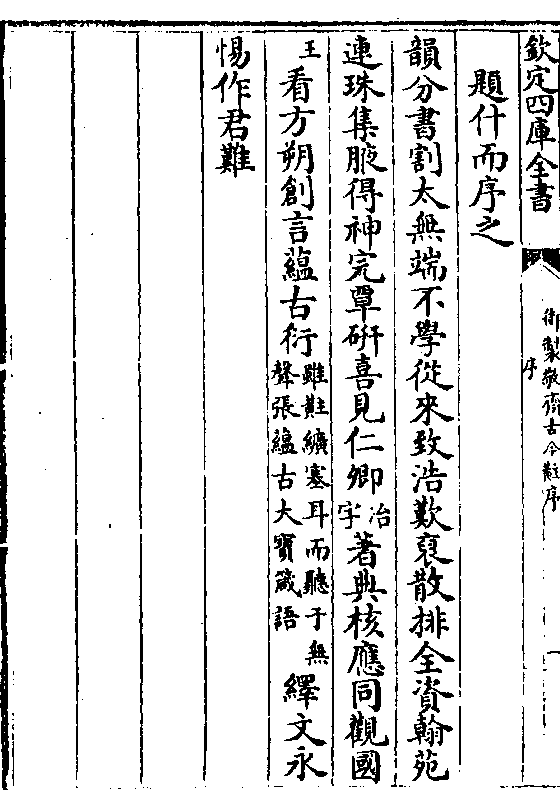 欽定四庫全書
御製敬齋古今黈序
序
一
題什而序之
韻分書割太無端不學從來致浩歎裒散排全資翰苑
連珠集腋得神完覃硏喜見仁卿冶字著典核應同觀國
王看方朔創言藴古衍雖黈纊塞耳而聽于無聲張藴古大寶箴語繹文永
惕作君難